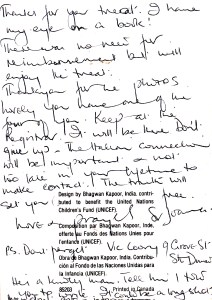 Thanks for your treat. I have
my eye on a book!
There was no need for
reimbursement but will
enjoy the treat.
Thankyou for the photos
lovely you have one of the
four of you. Keep all the
I will be there don't
give up - The Italian connection
will be important & not
too late in your lifetime to
make contact. The truth will
set you free
Love &
Design by Bhagwan Kapoor, India, contri-
buted to benefit the United Nations
Children's Fund (UNICEF).
Composition par Bhagwan Kapoor, Inde,
offerte au Fonds des Nations Unies pour
l'enfance (UNICEF).
Obra de Bhagwan Kapoor, India. Contribu-
ción al Fondo de las Naciones Unidas para
la infancia (UNICEF)
Printed in Canada
PS. Don't forget Vic 9 Grove St
He's a kindly man. Tell him I told
you to a long shot